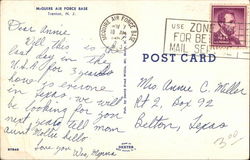 McGUIRE AIR FORCE BASE
Trenton, N. J.
Dear Annie
Well this is
last day in the
U.S.A. for 3 years
how is everyone
in Texas. We will
be looking for you
next year. Tell mom
aunt Mollie hello
Love you
McGUIRE AIR FORCE BASE
USE ZON
FOR BE
MAIL SE
POST CARD
Mrs Annie C. Miller
Rt 2, Box 92
Belton, Texas